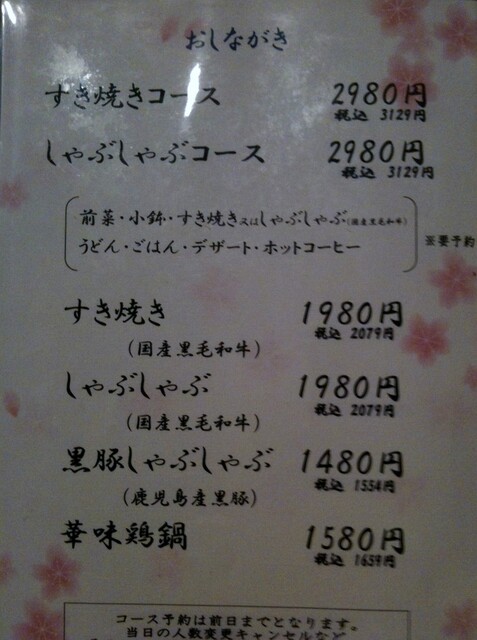 おしながき
すき焼きコース 2980円
税込 3129円
しゃぶしゃぶコース 2980円
税込 3129円
前菜・小鉢・すき焼き又はしゃぶしゃぶ(国産黒毛和牛)
うどん・ごはん・デザート・ホットコーヒー
※要予約
すき焼き 1980円
税込 2079円
(国産黒毛和牛)
しゃぶしゃぶ 1980円
税込 2079円
(国産黒毛和牛)
黒豚しゃぶしゃぶ 1480円
税込 1554円
(鹿児島産黒豚)
華味鶏鍋 1580円
税込 1659円
コース予約は前日までとなります。
当日の人数変更キャンセルなど